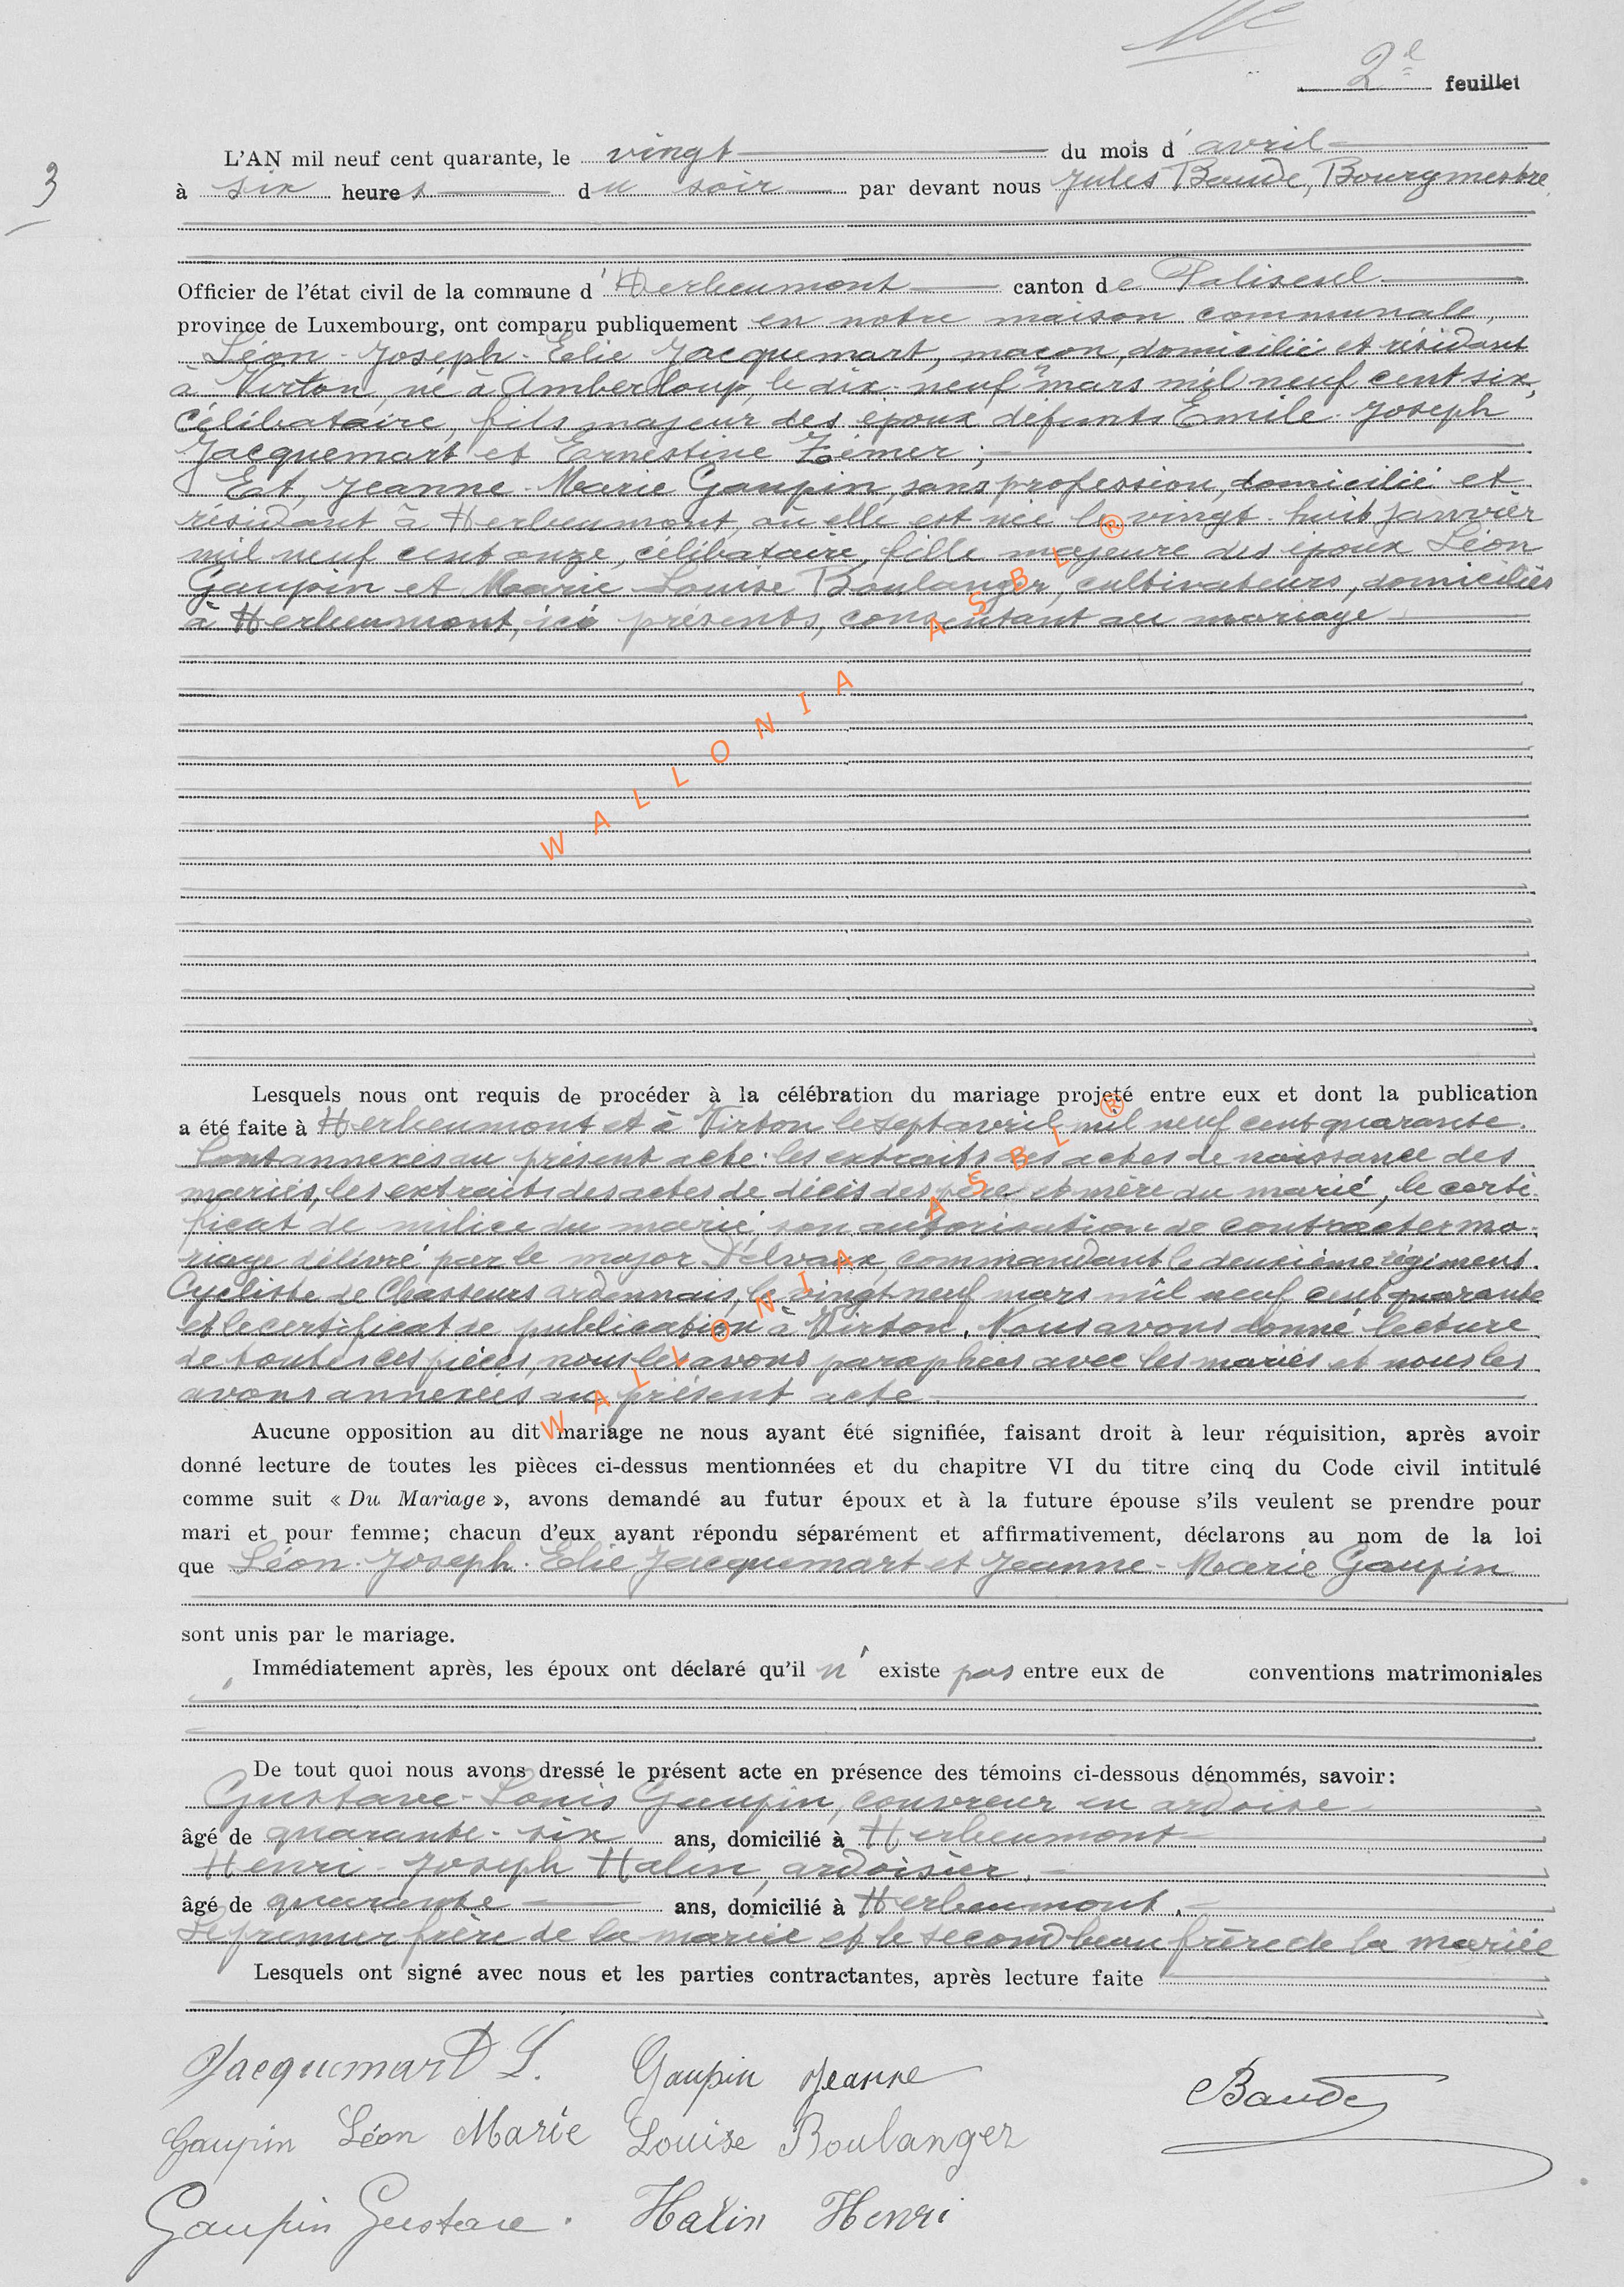 2e feuillet
3
L'AN mil neuf cent quarante, le vingt du mois d'avril
à six heures du soir par devant nous Jules Baude, Bourgmestre
Officier de l'état civil de la commune d'Herbeumont canton de Paliseul
province de Luxembourg, ont comparu publiquement en notre maison communale,
Léon-Joseph-Elie Jacquemart, maçon, domicilié et résidant
à Virton, né à Amberloup, le dix-neuf mars mil neuf cent six,
célibataire, fils majeur des époux défunts Emile-Joseph
Jacquemart et Ernestine Zimer;
Et, Jeanne-Marie Gaupin, sans profession, domicilié et
résidant à Herbeumont, où elle est née le vingt-huit janvier
mil neuf cent onze, célibataire, fille majeure des époux Léon
Gaupin et Marie-Louise Boulanger, cultivateurs, domiciliés
à Herbeumont, ici présents, consentant au mariage
WALLONIA ASBL ®
Lesquels nous ont requis de procéder à la célébration du mariage projeté entre eux et dont la publication
a été faite à Herbeumont et à Virton le sept avril mil neuf cent quarante.
Sont annexés au présent acte: les extraits des actes de naissance des
mariés, les extraits des actes de décès des père et mère du marié, le certi-
ficat de milice du marié, son autorisation de contracter ma-
riage délivré par le major Delvaux, commandant le deuxième régiment
Cycliste de Chasseurs ardennais, le vingt neuf mars mil neuf cent quarante
et le certificat de publication à Virton. Nous avons donné lecture
de toutes ces pièces, nous les avons paraphées avec les mariés et nous les
avons annexées au présent acte
WALLONIA ASBL ®
Aucune opposition au dit mariage ne nous ayant été signifiée, faisant droit à leur réquisition, après avoir
donné lecture de toutes les pièces ci-dessus mentionnées et du chapitre VI du titre cinq du Code civil intitulé
comme suit « Du Mariage », avons demandé au futur époux et à la future épouse s'ils veulent se prendre pour
mari et pour femme; chacun d'eux ayant répondu séparément et affirmativement, déclarons au nom de la loi
que Léon-Joseph-Elie Jacquemart et Jeanne-Marie Gaupin
sont unis par le mariage.
Immédiatement après, les époux ont déclaré qu'il n'existe pas entre eux de conventions matrimoniales
De tout quoi nous avons dressé le présent acte en présence des témoins ci-dessous dénommés, savoir:
Gustave-Louis Gaupin, couvreur en ardoise
âgé de quarante-six ans, domicilié à Herbeumont
Henri-Joseph Halin, ardoisier,
âgé de quarante ans, domicilié à Herbeumont.
Le premier frère de la mariée et le second beau frère de la mariée
Lesquels ont signé avec nous et les parties contractantes, après lecture faite
Jacquemart L. Gaupin Jeanne
Baude
Gaupin Léon Marie Louise Boulanger
Gaupin Gustave. Halin Henri